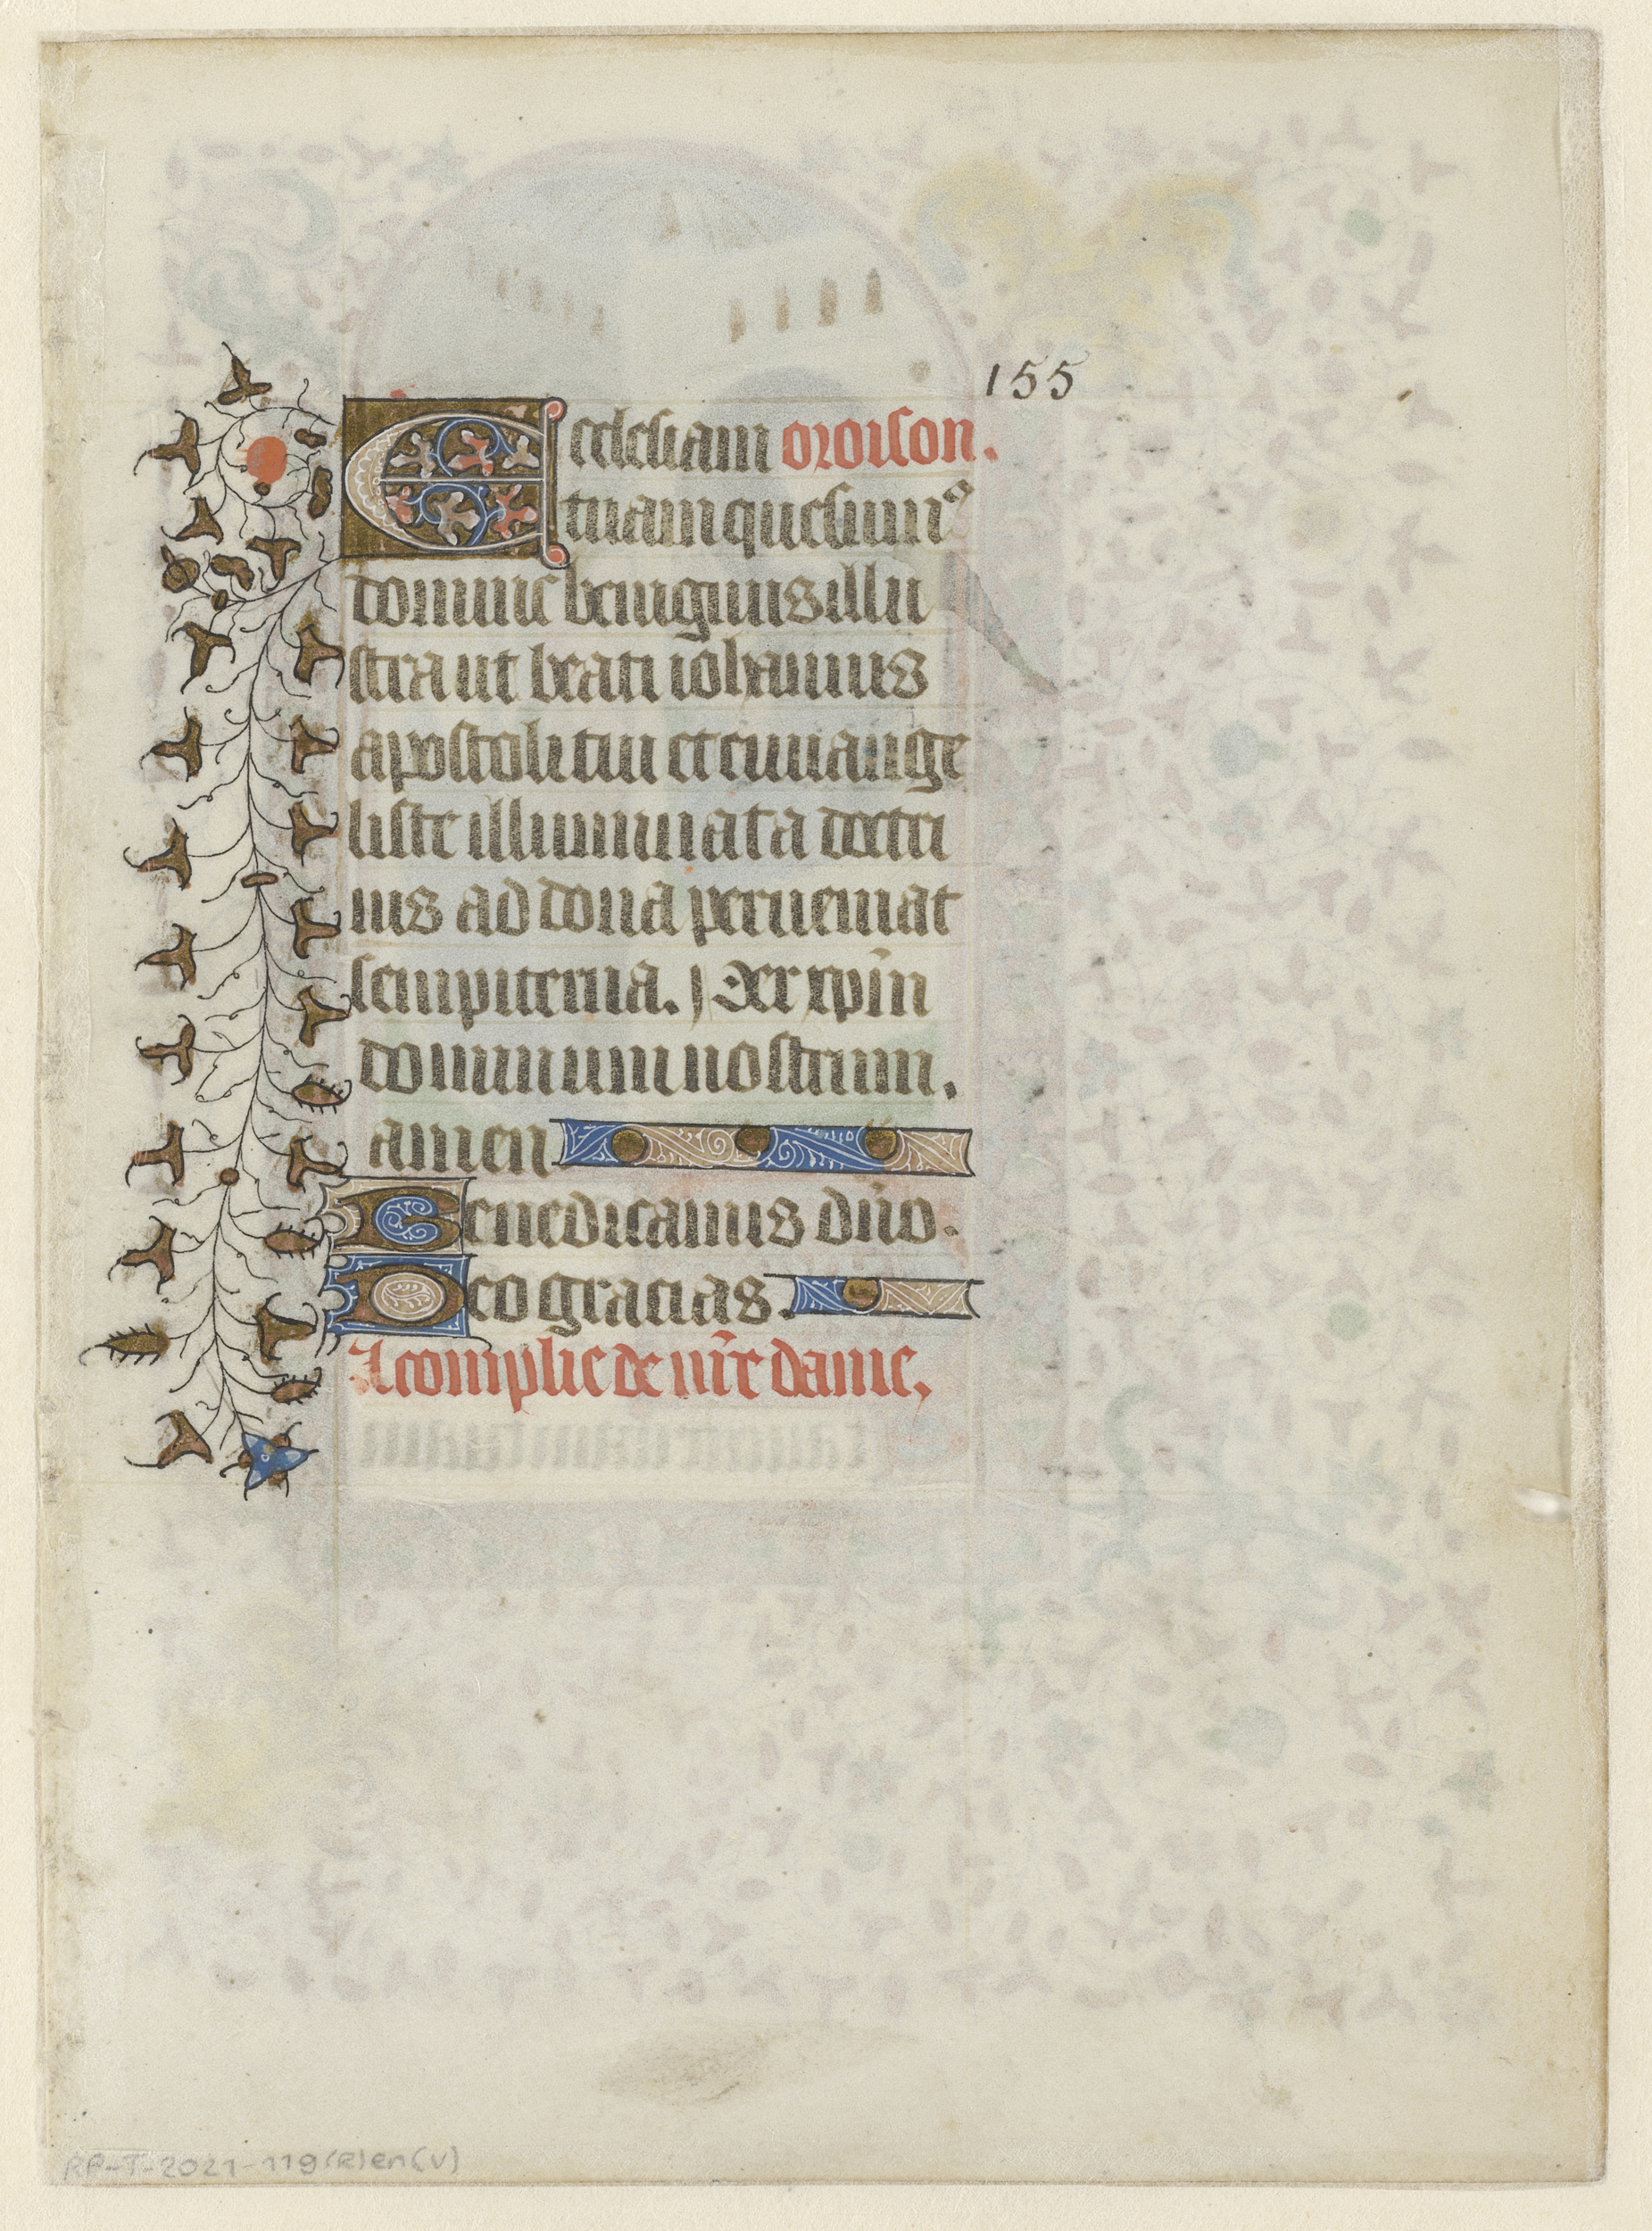 155
Ecclesiam oroison.
tuam quesumꝰ
domine benignus illu
stra ut beati iohannis
apostoli tui et euuange
liste illuminata doctri
nis ad dona perueniat
sempiterna. Per xp̄m
dominum nostrum.
amen
Benedicamus dn̄o.
Deo gracias.
A complie de nr̄e dame.
RP-T-2021-119(R)en(V)